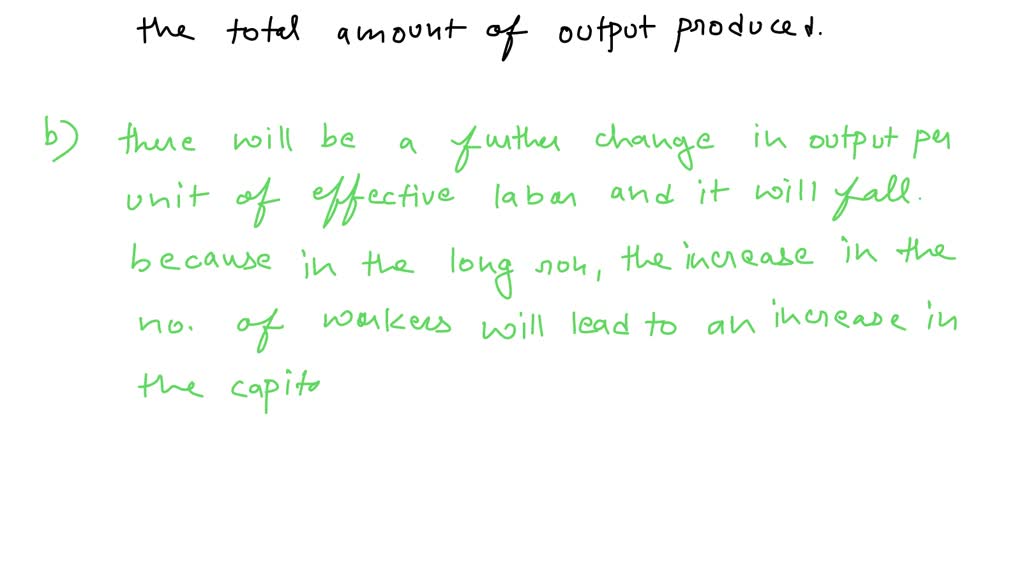 the total amount of output produced.
b) there will be a further change in output per
unit of effective labor and it will fall.
because in the long run, the increase in the
no. of workers will lead to an increase in
the capita